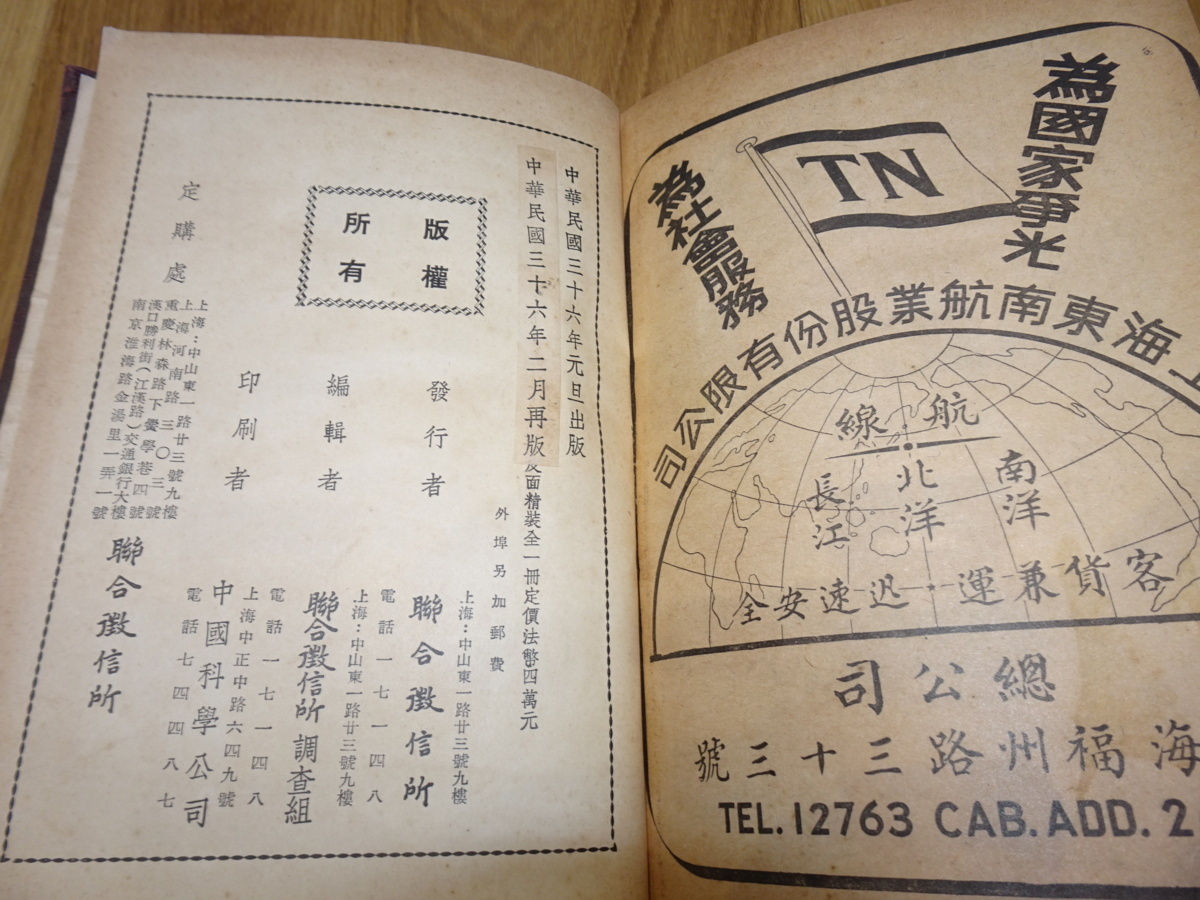 中華民國三十六年元旦出版
中華民國三十六年二月再版
皮面精裝全一冊定價法幣四萬元
外埠另加郵費
版權
所有
發行者
聯合徵信所
上海:中山東一路廿三號九樓
電話 一七一四八
編輯者
聯合徵信所調查組
上海:中山東一路廿三號九樓
電話 一七一四八
印刷者
中國科學公司
上海中正中路六四九號
電話 七四四八七
定購處
上海:中山東一路廿三號九樓
上海河南路三〇三號
重慶林森路下黌學巷四號
漢口勝利街(江漢路)交通銀行大樓
南京淮海路金湯里一弄一號
聯合徵信所
為國家爭光
TN
為社會服務
上海東南航業股份有限公司
航線
南洋
北洋
長江
客貨兼運・迅速安全
總公司
海福州路三十三號
TEL. 12763 CAB. ADD. 2